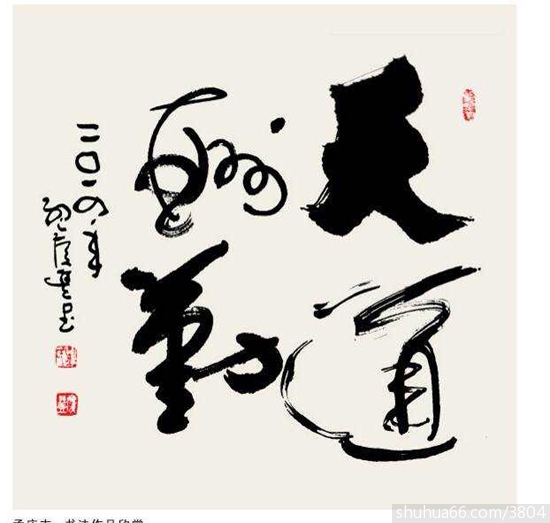 天道
酬勤
二〇一四年
书法作品欣赏
shuhua66.com/3804